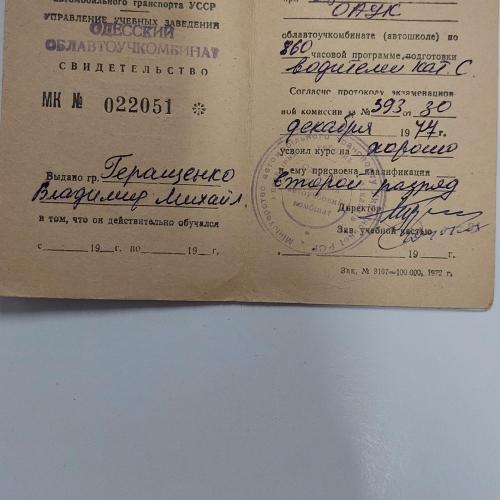 автомобильного транспорта УССР
УПРАВЛЕНИЕ УЧЕБНЫХ ЗАВЕДЕНИЙ
ОДЕССКИЙ
ОБЛАВТОУЧКОМБИНАТ
СВИДЕТЕЛЬСТВО
МК № 022051
Выдано гр. Геращенко
Владимир Михайл.
в том, что он действительно обучался
с 19 г. по 19 г.
при
ОАУК
облавтоучкомбинате (автошколе) по
860 часовой программе подготовки
водителей кат. С.
Согласно протоколу экзаменацион
ной комиссии за № 393 от 30
декабря 1977 г.
усвоил курс на хорошо
и ему присвоена квалификация
второй разряд
Директор
Зав. учебной частью
19 г.
Зак. № 3107—100.000, 1972 г.